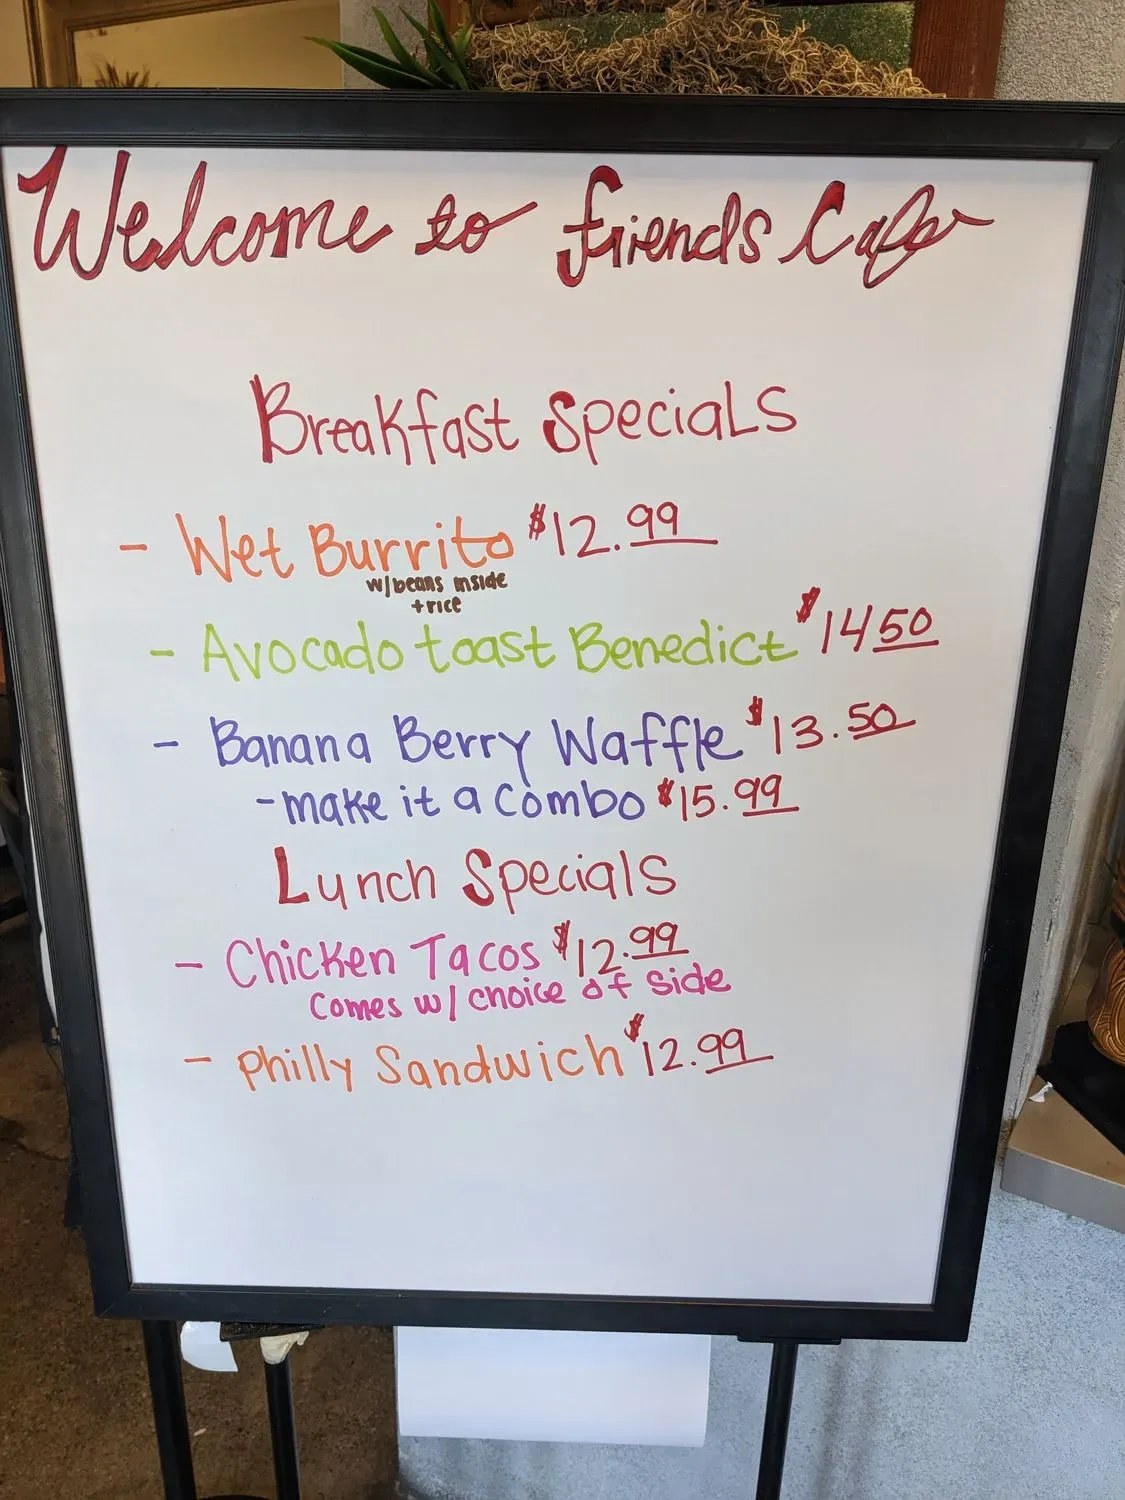 Welcome to friends Cafe
Breakfast Specials
- Wet Burrito $12.99
w/beans inside
+rice
- Avocado toast Benedict $14 50
- Banana Berry Waffle $13.50
- make it a combo $15.99
Lunch Specials
- Chicken Tacos $12.99
Comes w/ choice of side
- Philly Sandwich $12.99